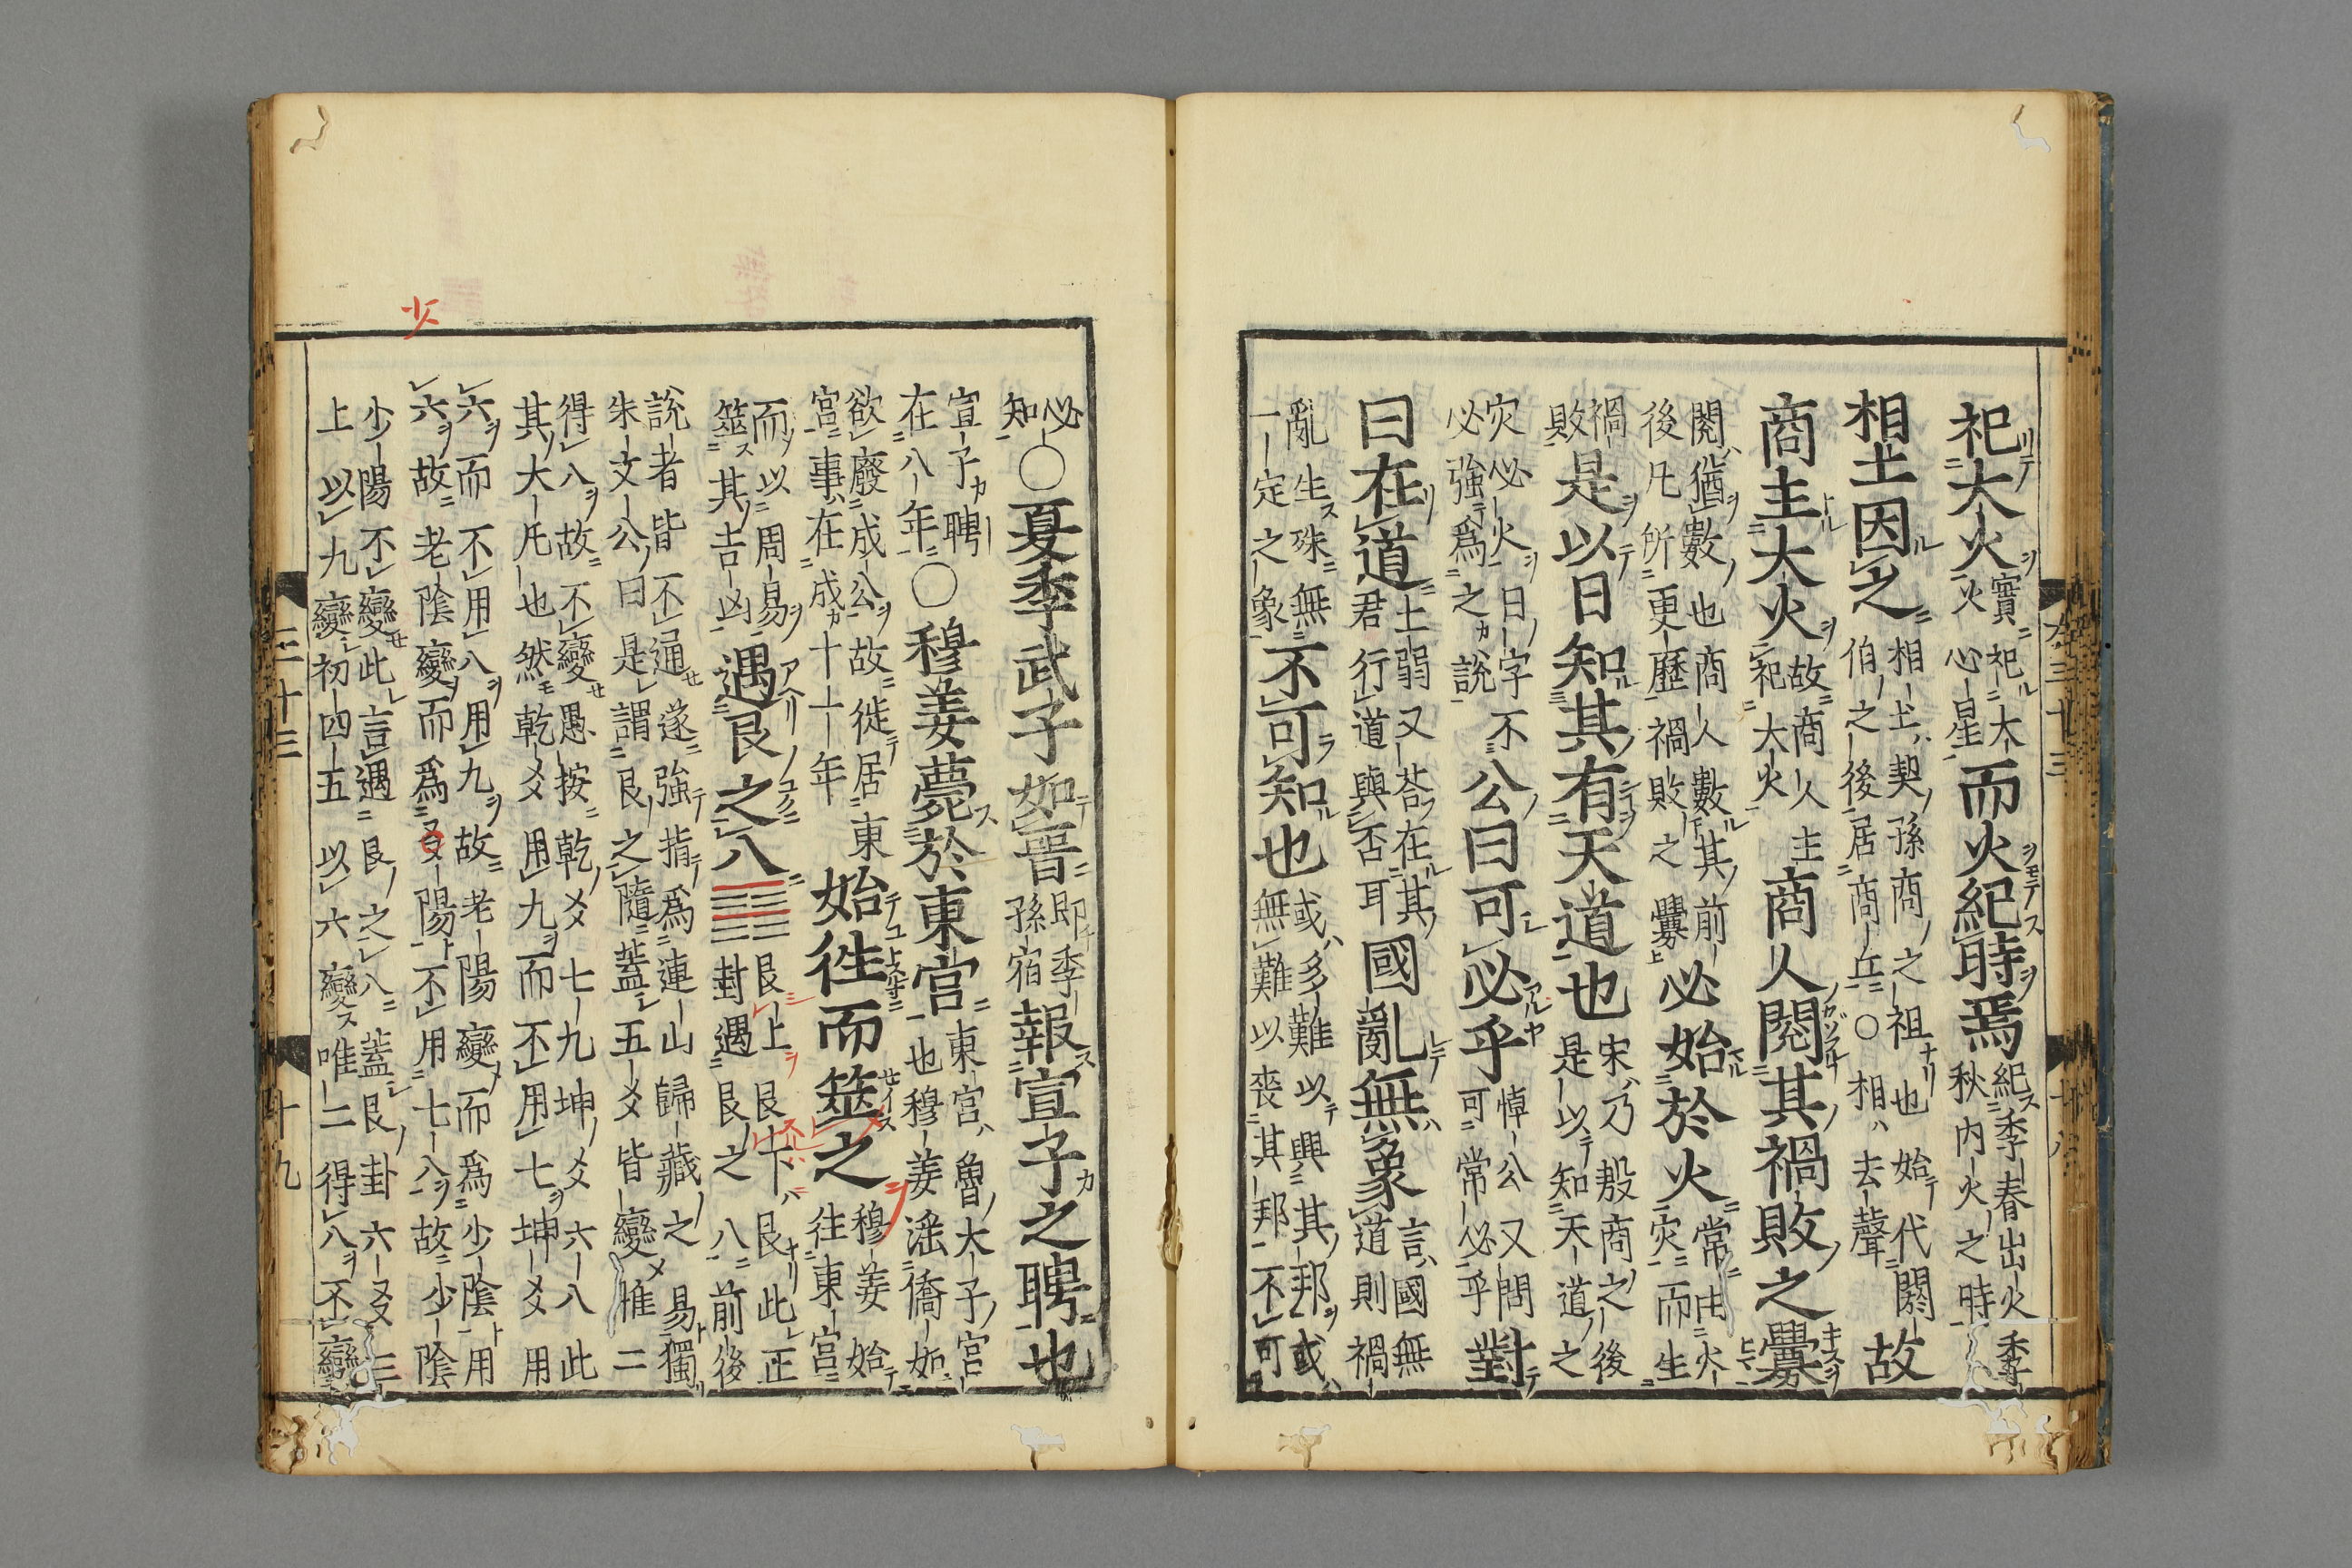 祀大火實祀大火心星而火紀時焉紀季春出火季秋內火之時
相土因之相土契孫商之祖也始代閼伯之後居商丘〇相去聲故
商主大火故商人主祀大火商人閱其禍敗之釁
閱猶數也商人數其前後凡所更歷禍敗之釁必始於火常由火灾而生
禍敗是以日知其有天道也宋乃殷商之後是以知天道之
灾必火日字不必強爲之說公曰可必乎悼公又問可常必乎對
曰在道士弱又荅在其君行道與否耳國亂無象言國無道則禍
亂生殊無一定之象不可知也或多難以興其邦或無難以喪其邦不可
必知〇夏季武子如晉即季孫宿報宣子之聘也
宣子聘在八年〇穆姜薨於東宮東宮魯大子宮也穆姜滛僑如
欲廢成公故徙居東宮事在成十六年始徃而筮之穆姜始往東宮
而以周易筮其吉凶遇艮之八艮上艮下艮此正卦遇艮之八前後
說者皆不通遂強指爲連山歸藏之易獨朱文公曰是謂艮之隨蓋五爻皆變惟二
得八故不變愚按乾爻七九坤爻六八此其大凡也然乾爻用九而不用七坤爻用
六而不用八用九故老陽變而爲少陰用六故老陰變而爲爻陽不用七八故少陰
少陽不變此言遇艮之八蓋艮卦六爻三上以九變初四五以六變唯二得八不變
少
左三十三
十八
三十三
十九